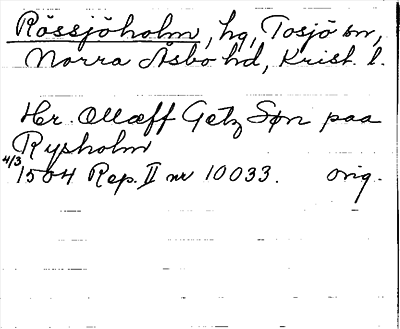 Rössjöholm, hg, Tosjö sn,
Norra Åsbo hd, Krist. l.
Her. Olaeff Getz Søn paa
Rysholm
4/3 1504 Rep. II nr 10033. orig.